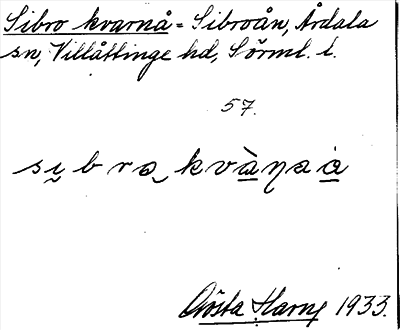 Sibro kvarnå = Sibroån, Årdala
sn, Villåttinge hd, Sörml. l.
57.
Gösta Harng 1933.